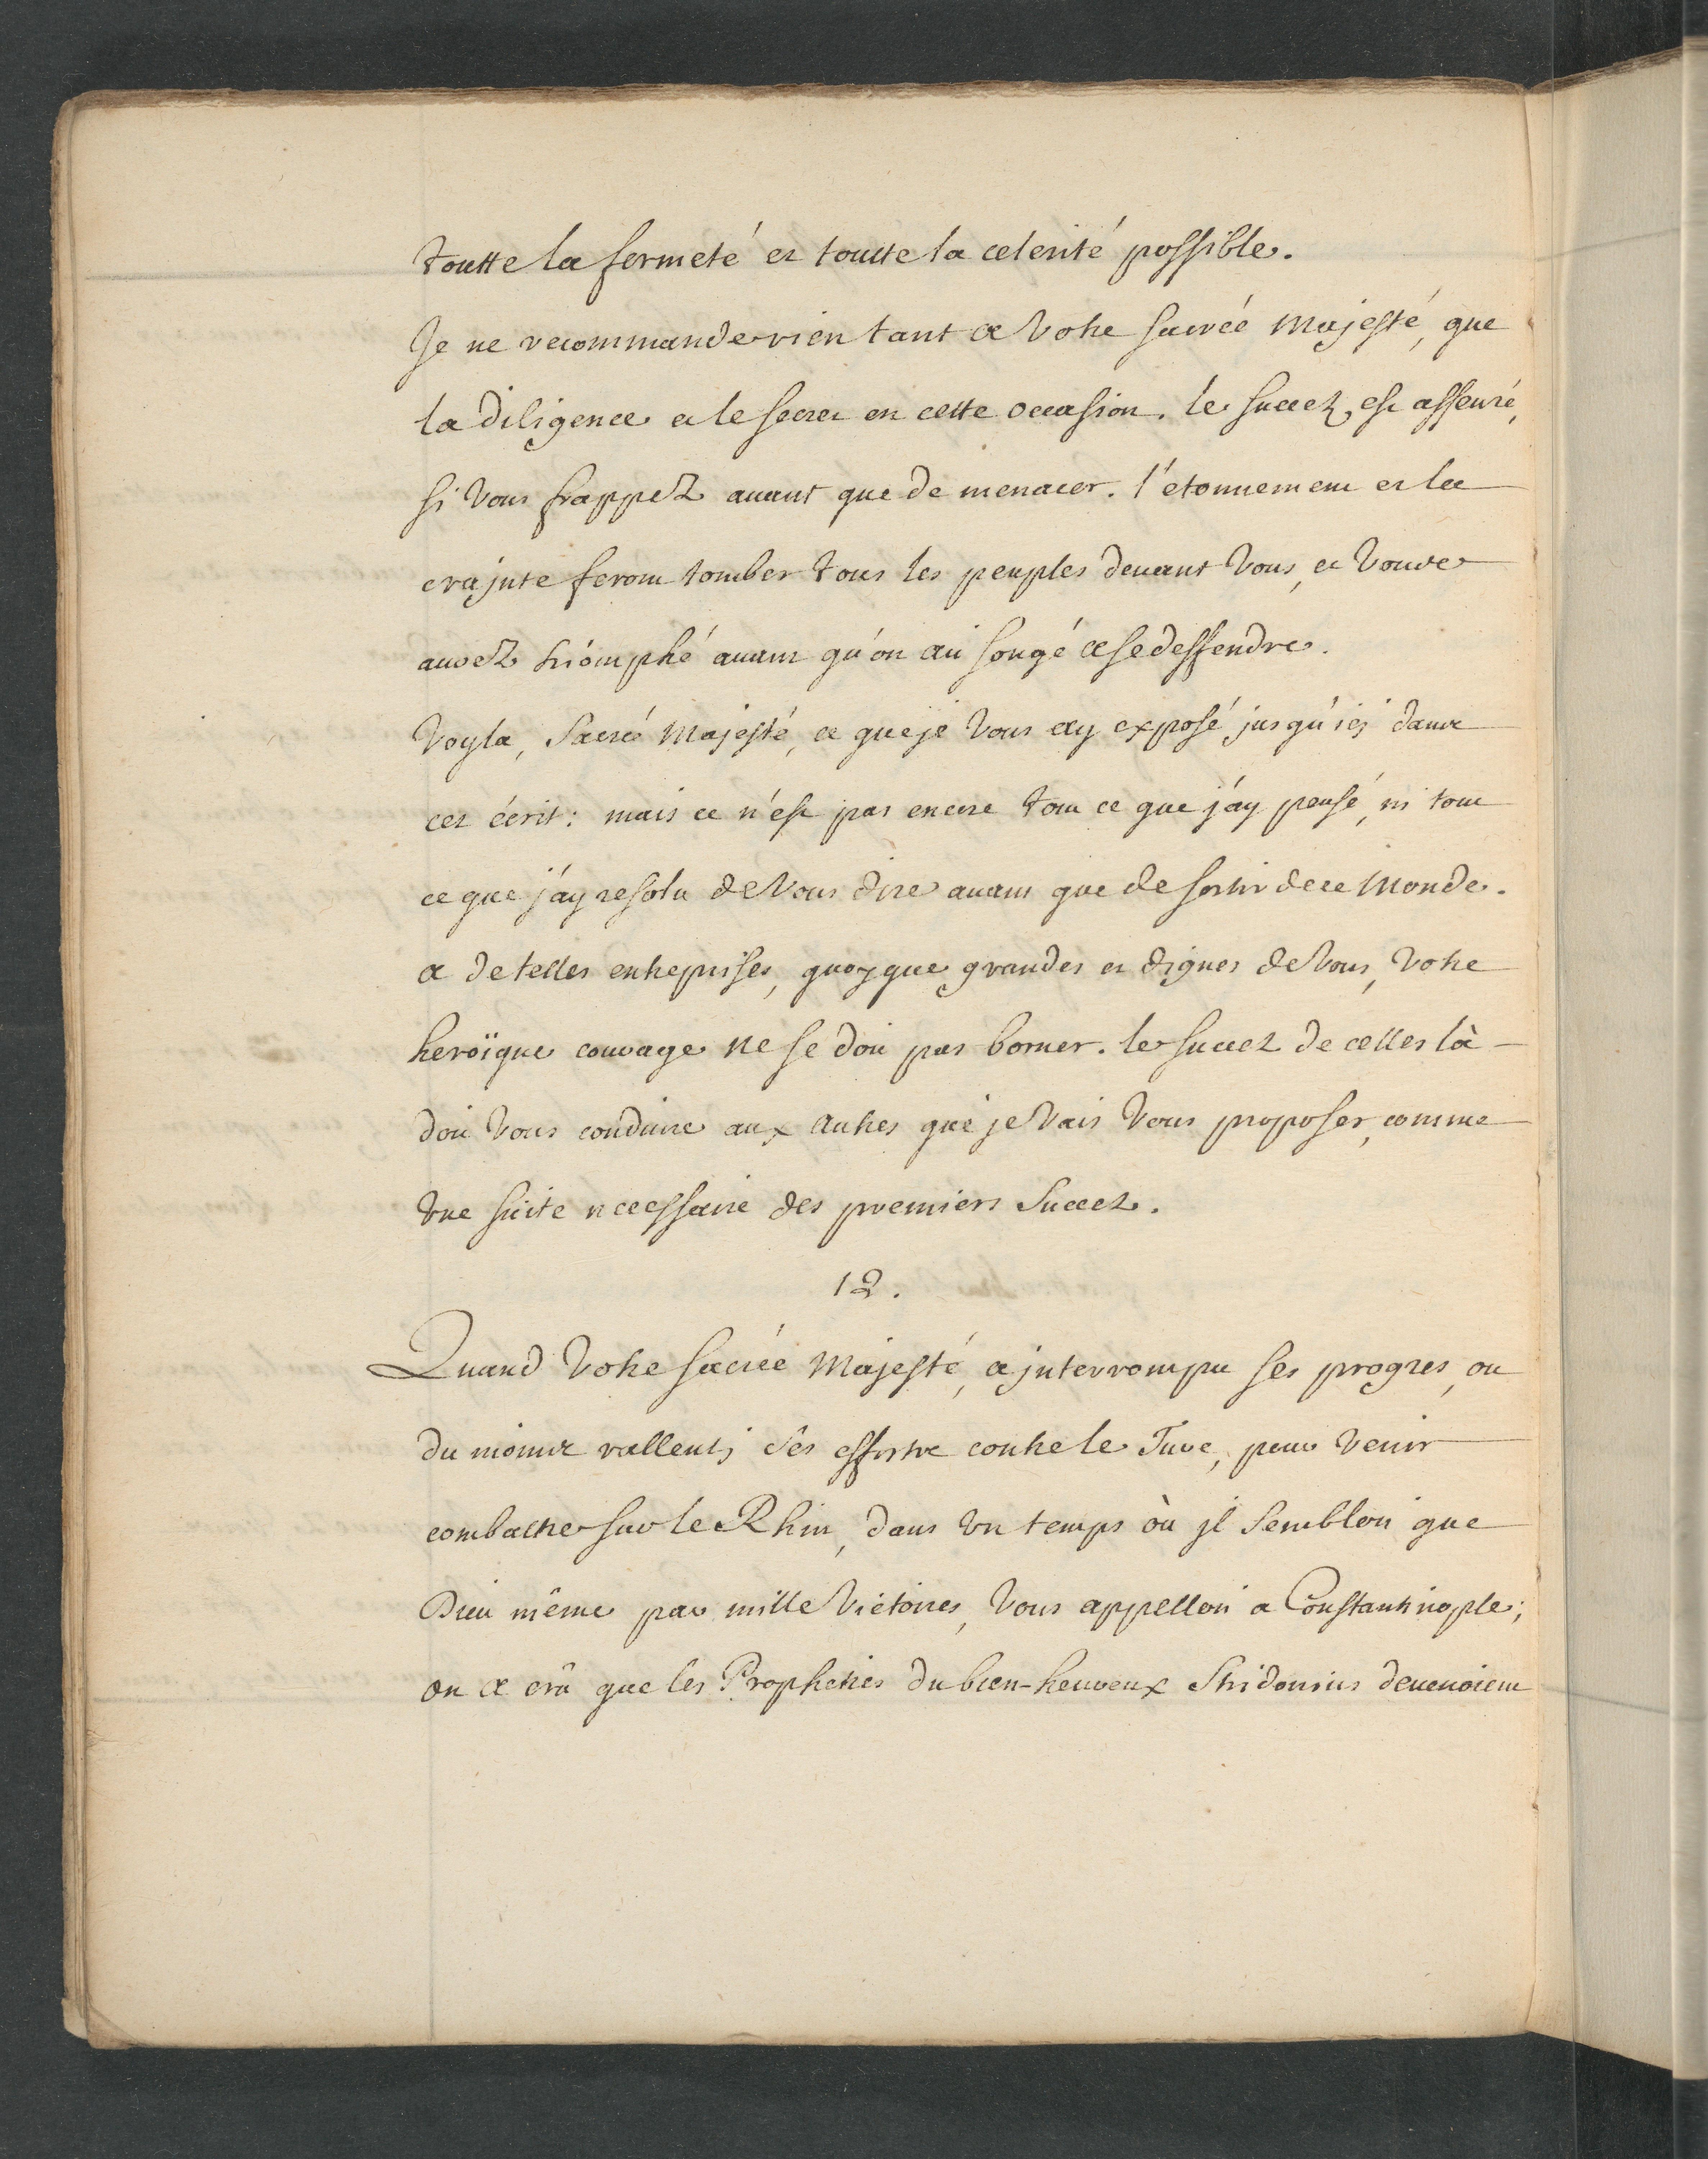 toutte la fermeté et toutte la celerité possible.
Je ne recommande rien tant a Votre Sacrée Majesté, que
la diligence et le secret en cette occasion. le succez est asseuré,
si Vous frappez auant que de menacer. l'etonnement et la
crajnte feront tomber tous les peuples deuant Vous, et Vous
aurez triomphé auant qu'on ait songé a se deffendre.
Voyla, Sacré Majesté, ce que je Vous ay exposé jusqu'icj dans
cet écrit: mais ce n'est pas encore tout ce que j'ay pensé, ni tout
ce que j'ay resolu de Vous dire auant que de sortir de ce Monde.
a de telles entreprises, quoyque grandes et dignes de Vous, Votre
heroïque courage ne se doit pas borner. le succez de celles là
doit Vous conduire aux autres que je Vais Vous proposer, comme
Vne suite necessaire des premiers Succez.
12.
Quand Votre Sacrée Majesté, a jnterrompu ses progres, ou
du moins rallentj ses efforts contre le Turc, pour Venir
combattre sur le Rhin, dans Vn temps où jl sembloit que
Dieu même par mille Victoires, Vous appelloit a Constantinople;
on a crû que les Propheties du bien-heureux Stridonius deuenoient